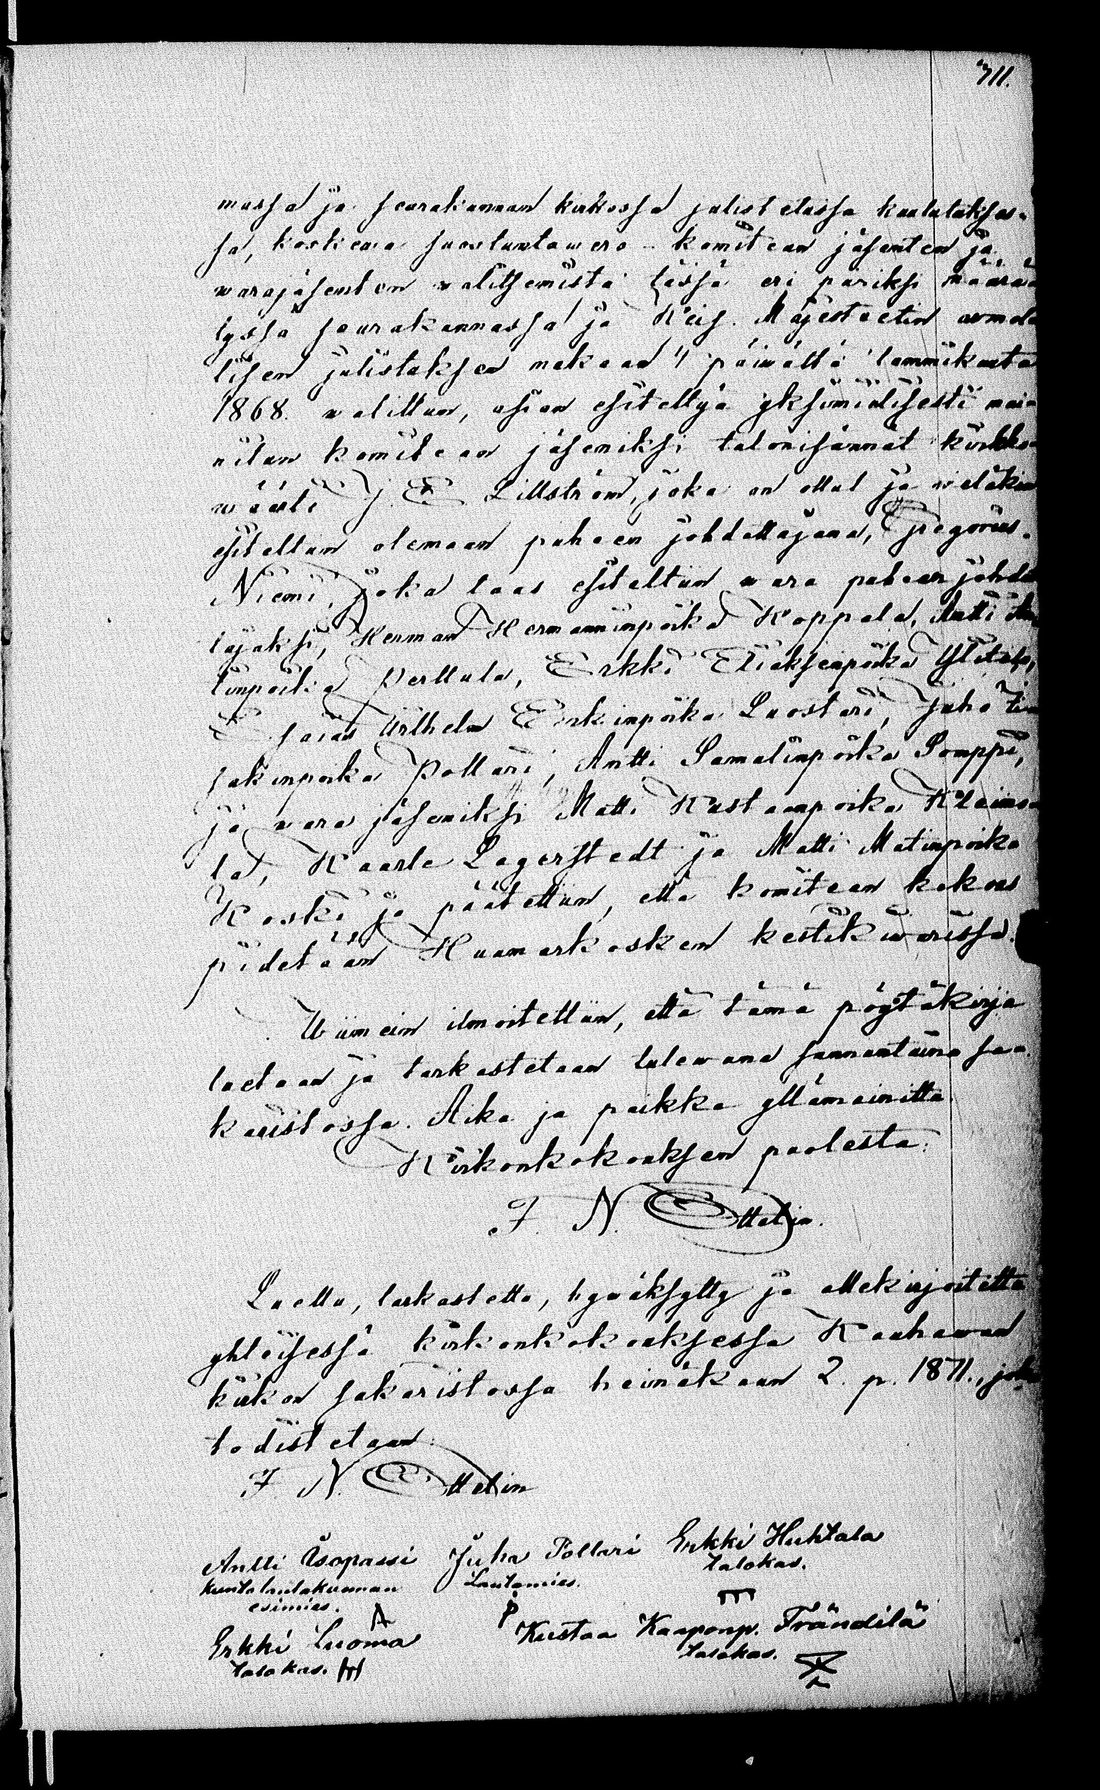 711.
massa ja seurakunnan kirkossa julistetussa kuulutukses-
sa, koskewa suostuntawero-komitean jäsenten ja
warajäsenten walitsemista tässä eri päriksi määrä
tyssä seurakunnassa ja Keis. Majesteetin armol
lisen julistuksen mukaan 4 päiwältä tammikuuta
1868 walittiin, asian esiteltyä yksimielisesti mai
nitun komitean jäseniksi talonisännät kirkko
wäärti J. E. Lillström, joka on ottat ja
esiteltiin olemaan puheen johdattajana, Gregorius
Niemi, joka taas esiteltiin wara puheen johda
tajaksi, Herman Hermanninpoika Koppala, Matti
tinpoika Perttula, Erkki Eliaksenpoika Ylitalo,
Esaias Wilhelm Erkinpoika Luostari, Juho
jakinpoika Pollari, Antti Samulinpoika Somppi,
ja wara jäseniksi Matti Kustaanpoika Kleimo
la, Kaarle Lagerstedt ja Matti Matinpoika
Koski ja päätettiin, että komitean kokous
pidetään Haamarkosken kestikiwarissa.
Wiimein ilmoitettiin, että tämä pöytäkirja
luetaan ja tarkastetaan tulewana sunnuntaina sa
karistossa. Aika ja paikka yllämainitta.
Kirkonkokouksen puolesta:
F. N. Ottelin.
Luettu, tarkastettu, hywäksytty ja allekirjoitettu
yhtöisessä kirkonkokouksessa Kauhawan
kirkon sakaristossa heinäkuun 2. p. 1871., joka
todistetaan:
F. N. Ottelin
Antti Isopassi Juha Pollari Erkki Huhtala
kuntalautakunnan Lautamies. talokas.
esimies.
Erkki Luoma Kustaa Kaaponp. Frändilä
talokas. talokas.